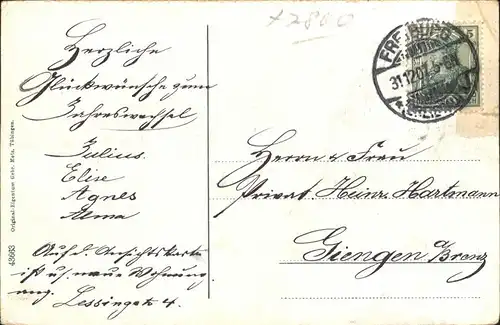 x 2800
Herzliche
Glückwünsche zum
Jahreswechsel
Julius.
Elise
Agnes
Alma
Auf d. Ansichtskarte
ist u/. neue Wohnung
ang. Lessingstr 4.
43663 Original-Eigentum Gebr. Metz, Tübingen.
FREIBURG
31.12.07. 5-6N
5
Herrn u Frau
Privat. Heinr. Hartmann
Giengen a/Brenz